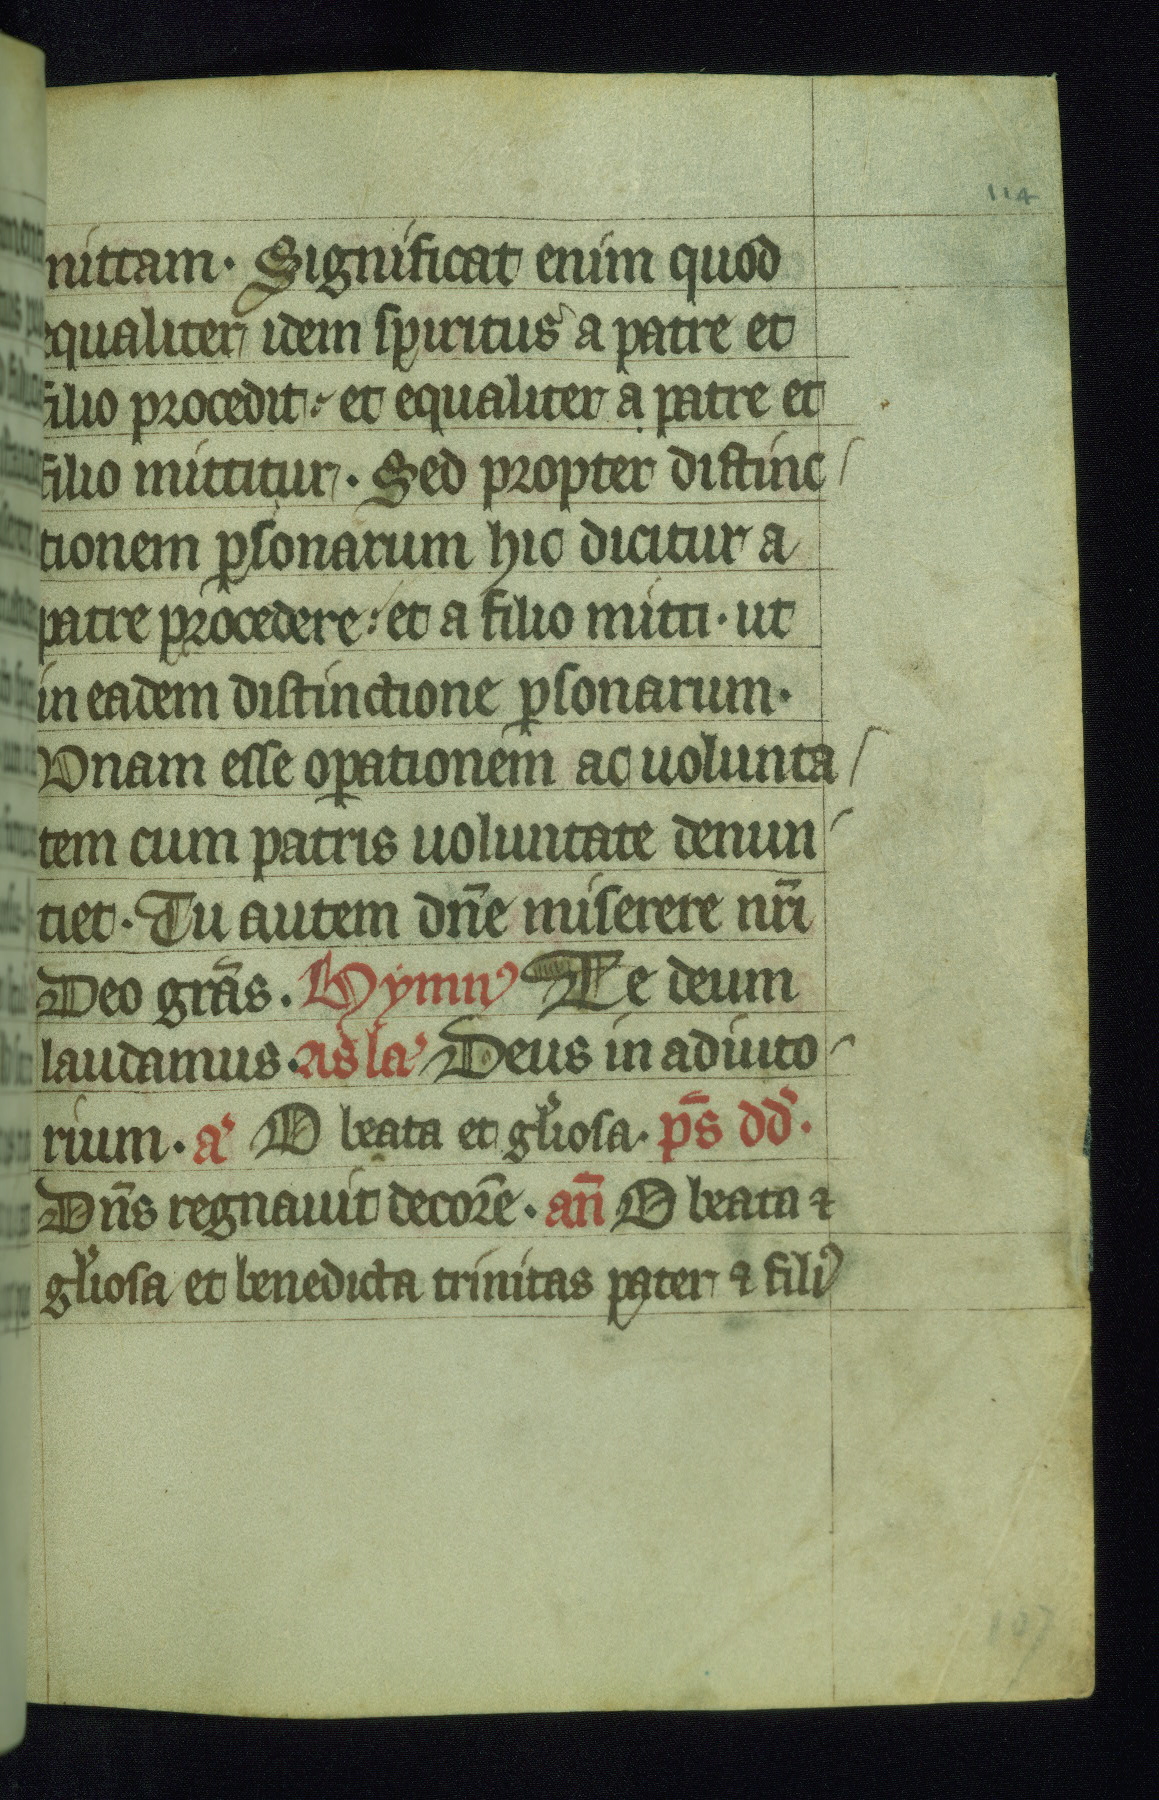 114
mittam. Significat enim quod
equaliter idem spiritus a patre et
filio procedit: et equaliter a patre et
filio mittitur. Sed propter distinc/
tionem p̲sonarum hic dicitur a
patre procedere: et a filio mitti. ut
in eadem distinctione p̲sonarum.
Vnam esse op̲ationem ac uolunta/
tem cum patris uoluntate denun/
tiet. Tu autem dn̄e miserere nr̄i
Deo grās. Hymnꝰ Te deum
laudamus. ad la' Deus in adiuto/
rium. a' O beata et gl'iosa. p̄s dd'.
Dn̄s regnauit decorē. an̄ O beata ⁊
gl'iosa et benedicta trinitas pater ⁊ filiꝰ
107